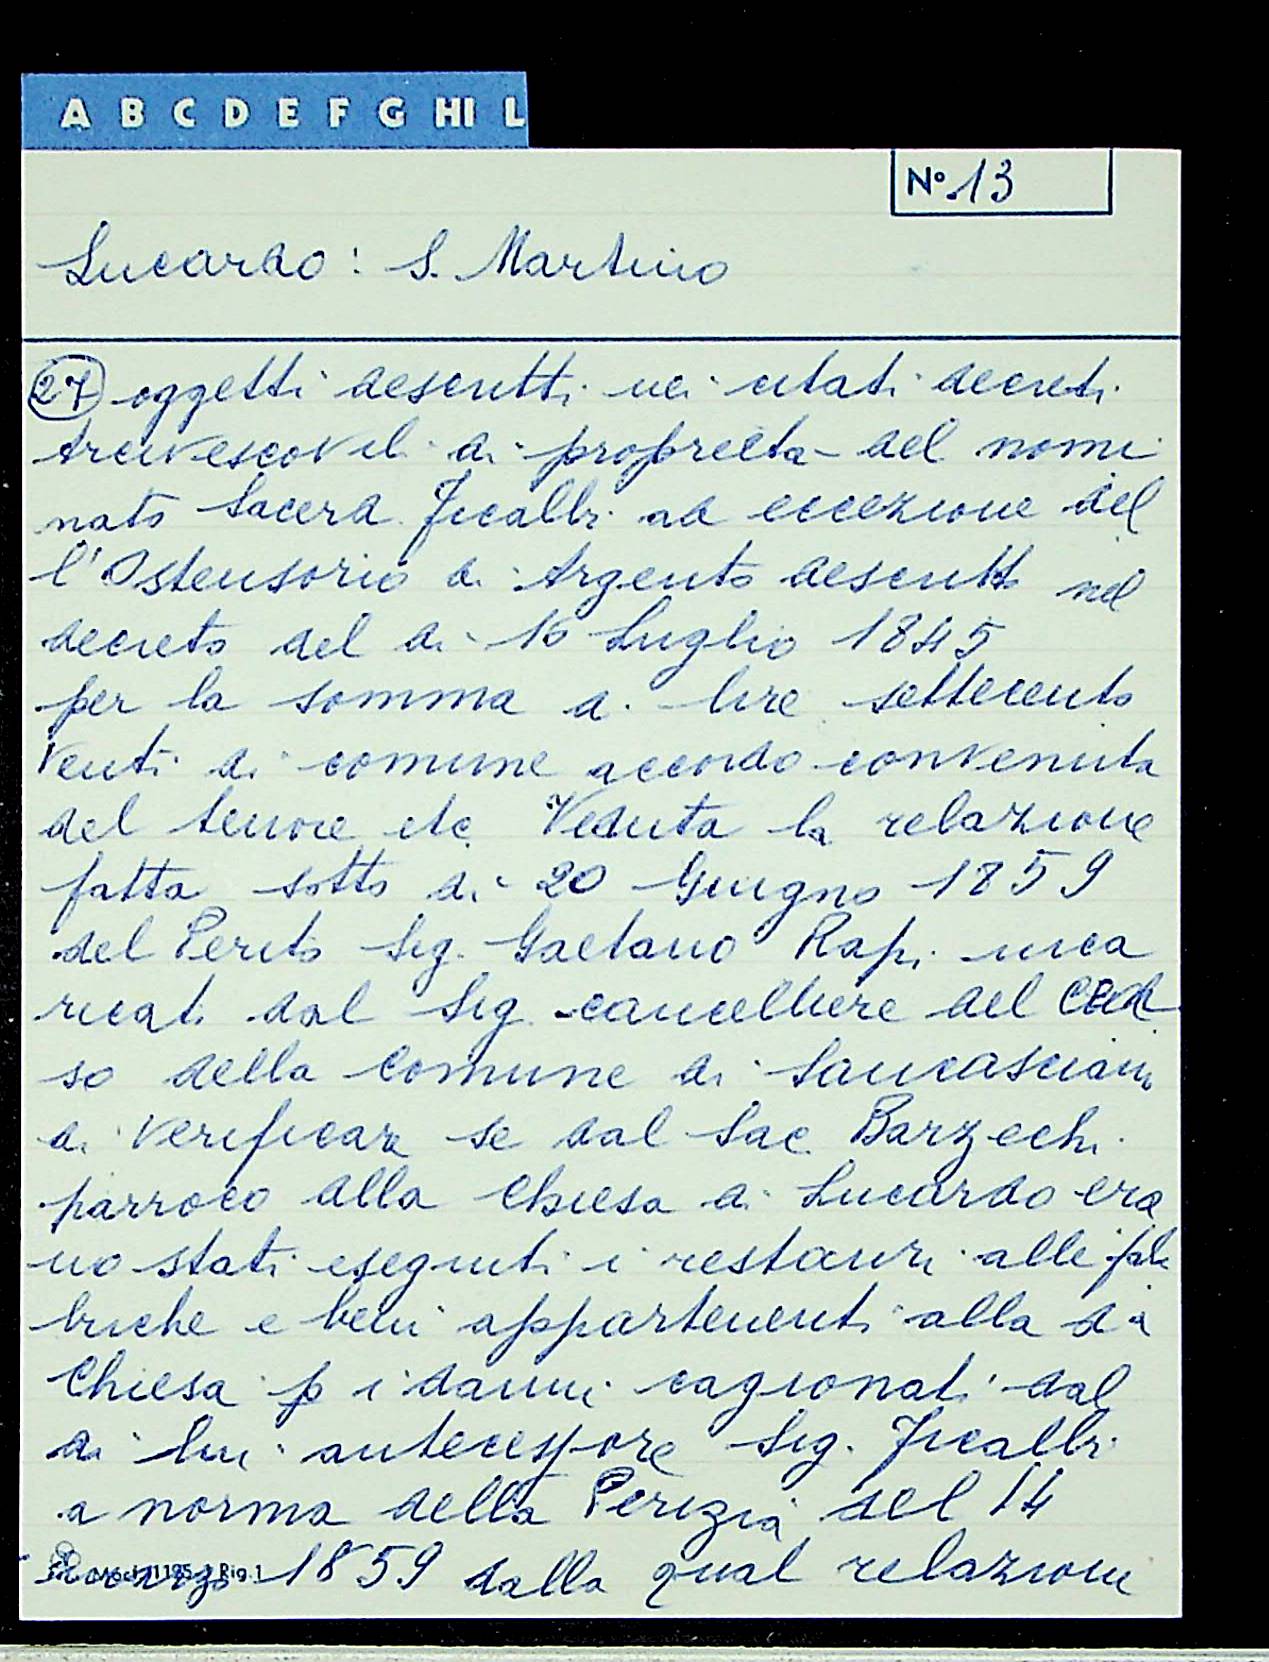 A B C D E F G HI L
Nº 13
Lucardo: S. Martino
27 oggetti descritti nei citati decreti
Arcivescovili di proprietà del nomi
nato Sacerd. Ficalbi ad eccezione del
l'Ostensorio di Argento descritto nel
decreto del di 10 Luglio 1845
per la somma di lire settecento
venti di comune accordo convenuta
del tenore etc. Veduta la relazione
fatta sotto di 20 Giugno 1859
del Perito Sig. Gaetano Rapi inca
ricati dal Sig. cancelliere del
so della Comune di Sancasciano
di verificare se dal Sac. Barzechi
parroco alla Chiesa di Lucardo era
no stati eseguiti i restauri alle fab
briche e beni appartenenti alla da
Chiesa p i danni cagionati dal
di lui antecessore Sig. Ficalbi
a norma della Perizia del 14
1859 dalla qual relazione